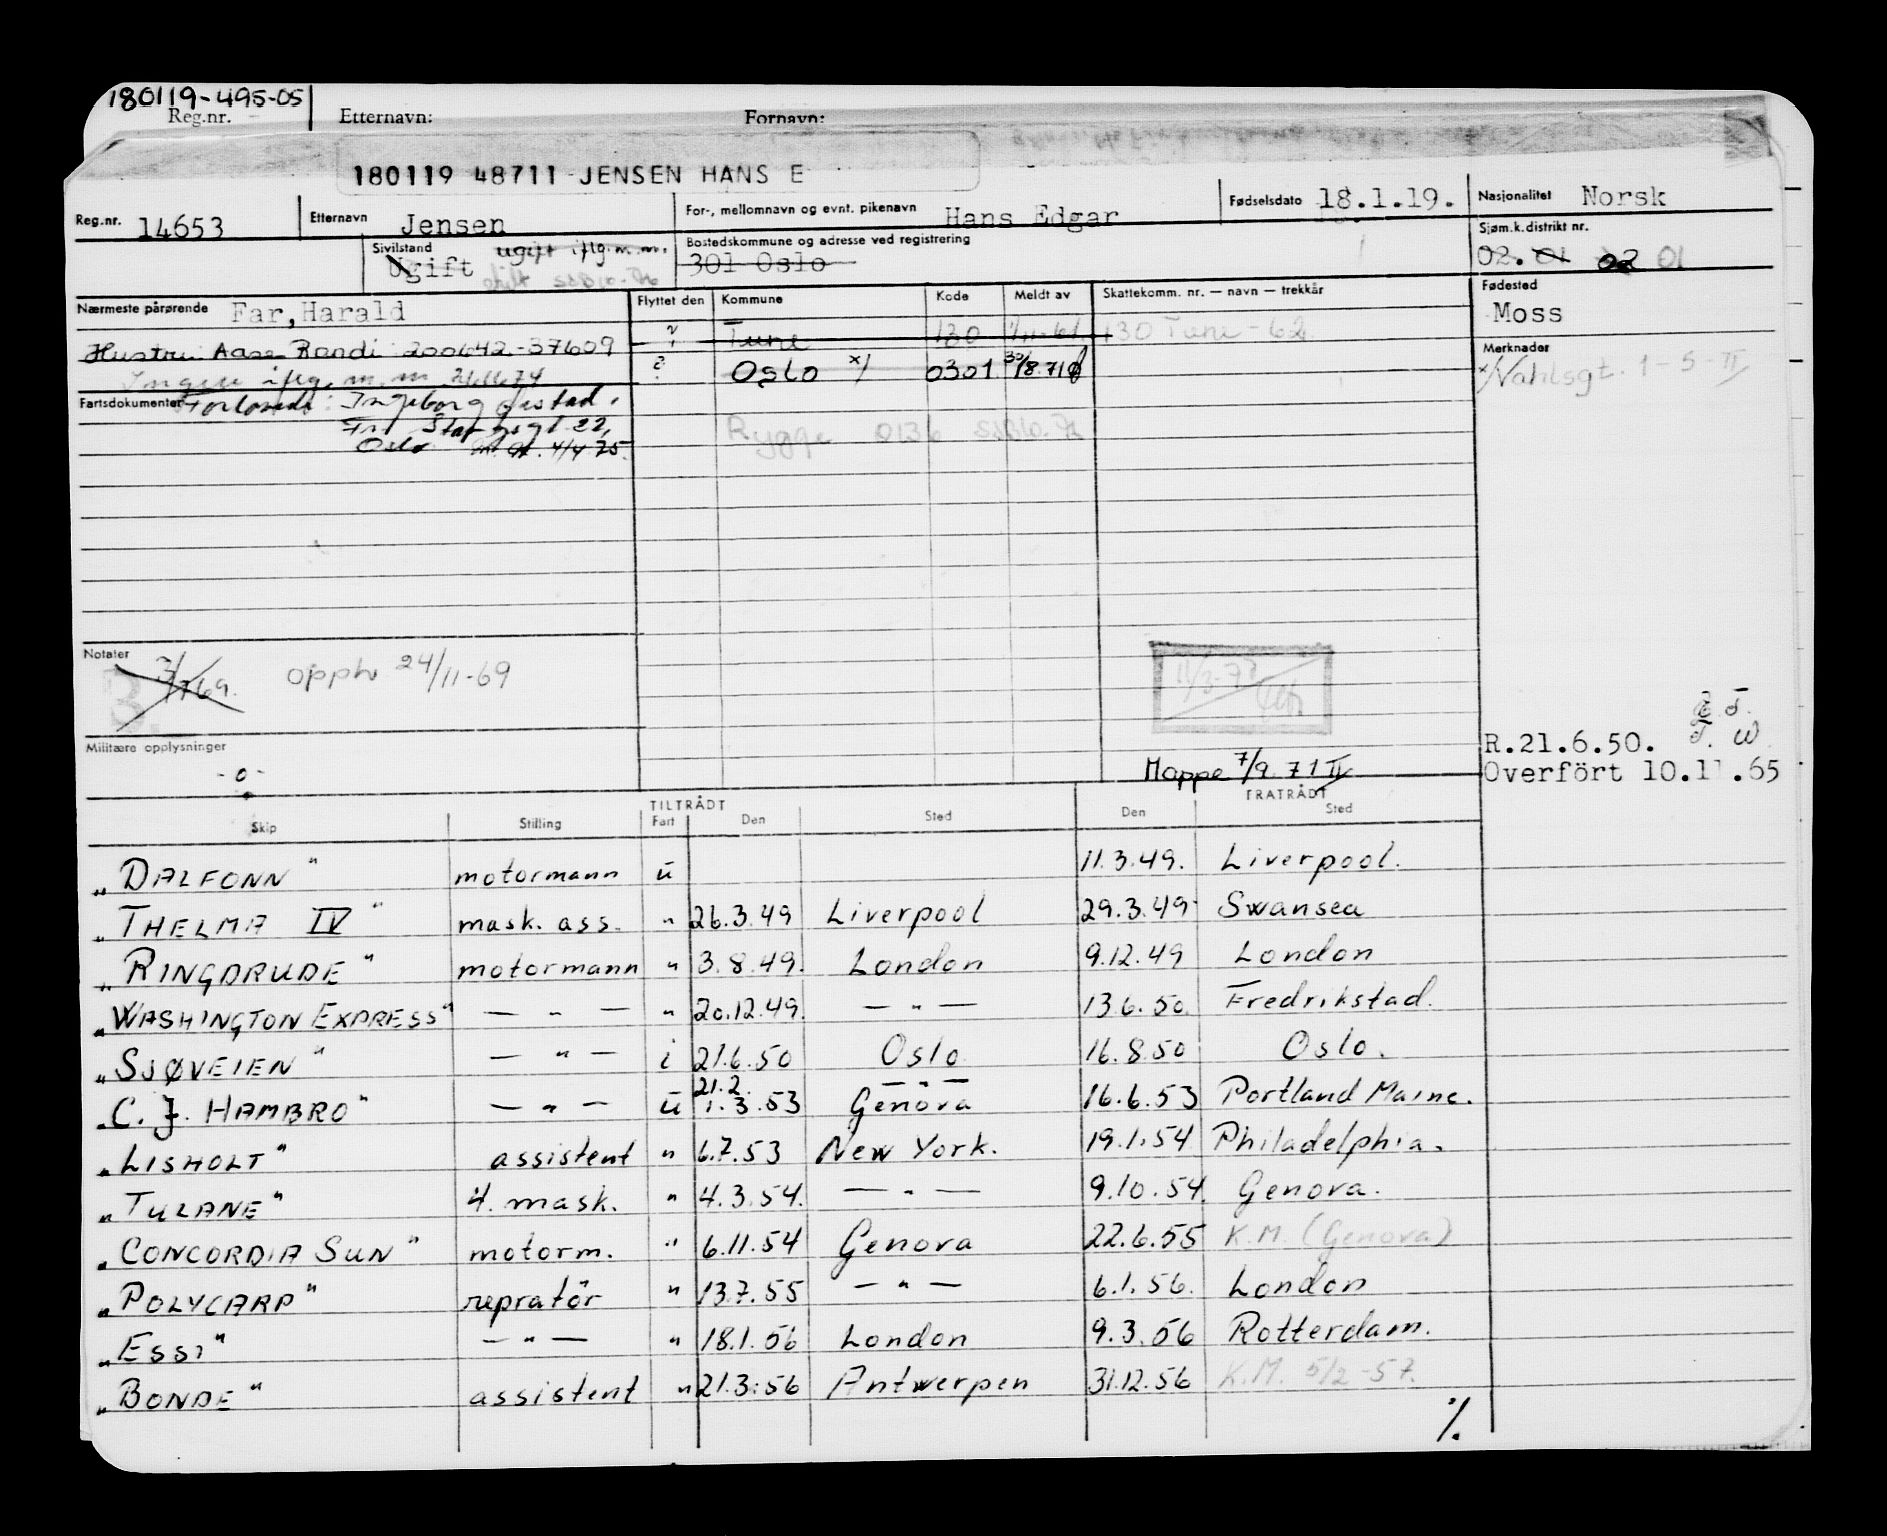 180119-495-05
Reg.nr. Etternavn: Fornavn:
180119 48711 JENSEN HANS E
Reg.nr. 14653 Etternavn Jensen For-, mellomnavn og evnt. pikenavn Hans Edgar Fødselsdato 18.1.19. Nasjonalitet Norsk
Sivilstand Ugift ugift iflg. m.m. Bostedskommune og adresse ved registrering 301 Oslo Sjøm.k.distrikt nr. 02. 01 02 01
Nærmeste pårørende Far, Harald Flyttet den Kommune Kode Meldt av Skattekomm. nr. — navn — trekkår Fødested Moss
? Tune 130 1/11-61 130 Tune - 62
Hustru Aase Randi 200642-37609 ? Oslo x/ 0301 30/8.71 Merknader
Ingen iflg. m.m 21.11.74 x/ Vahlsgt. 1-5-II
Fartsdokumenter Forlovede: Ingeborg
22, Rygge 0136
Oslo 4/4 75.
Notater 3/1 69. opphv 24/11-69
11/3-77
Militære opplysninger
-o-
Mappe 7/9.71 II
R.21.6.50.
Overført 10.11.65
TILTRÅDT FRATRÅDT
Skip Stilling Fart Den Sted Den Sted
„DALFONN" motormann u 11.3.49. Liverpool.
„THELMA IV" mask. ass. " 26.3.49 Liverpool 29.3.49 Swansea
„RINGDRUDE" motormann " 3.8.49. London 9.12.49 London
„WASHINGTON EXPRESS" — " — " 20.12.49. — " — 13.6.50. Fredrikstad.
„SJØVEIEN" — " — i 21.6.50 Oslo 16.8.50 Oslo.
21.2. — " —
„C. J. HAMBRO" — " — u 1.3.53 Genova 16.6.53 Portland Maine.
„LISHOLT" assistent " 6.7.53 New York. 19.1.54 Philadelphia.
„TULANE" 4. mask. " 4.3.54. — " — 9.10.54. Genova.
„CONCORDIA SUN" motorm. " 6.11.54 Genova 22.6.55 K.M. (Genova)
„POLYCARP" repratör " 13.7.55 — " — 6.1.56. London
„ESSI" — " — " 18.1.56 London 9.3.56 Rotterdam.
„BONDE" assistent " 21.3.56 Antwerpen 31.12.56 K.M. 5/2-57.
%